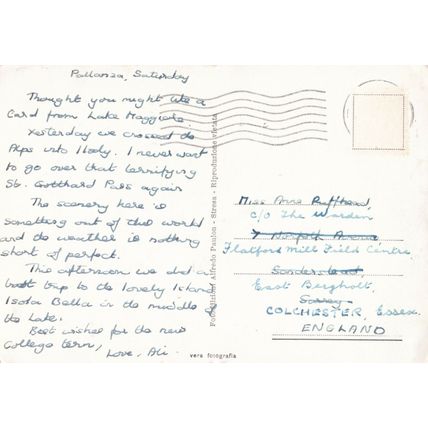 Pallanza, Saturday
Thought you might like a
Card from Lake Maggiore.
Yesterday we crossed the
Alps into Italy. I never want
to go over that terrifying
St. Gotthard Pass again
The scenery here is
something out of this world
and the weather is nothing
short of perfect.
This afternoon we did a
boat trip to the lovely Island
Isola Bella in the middle of
the Lake.
Best wishes for the new
College term,
Love, Ali.
Fotoedizioni Alfredo Paulon - Stresa - Riproduzione vietata
Miss Anne Puffhead,
c/o The Warden
7 Norfolk Avenue
Flatford Mill Field Centre
Sanderstead,
East Bergholt,
Surrey
COLCHESTER, Essex.
ENGLAND
vera fotografia